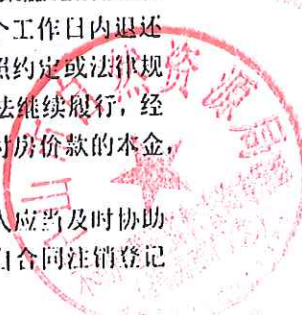 个工作日内退还
照约定或法律规
法继续履行，经
付房价款的本金，
人应当及时协助
自合同注销登记
然资源局